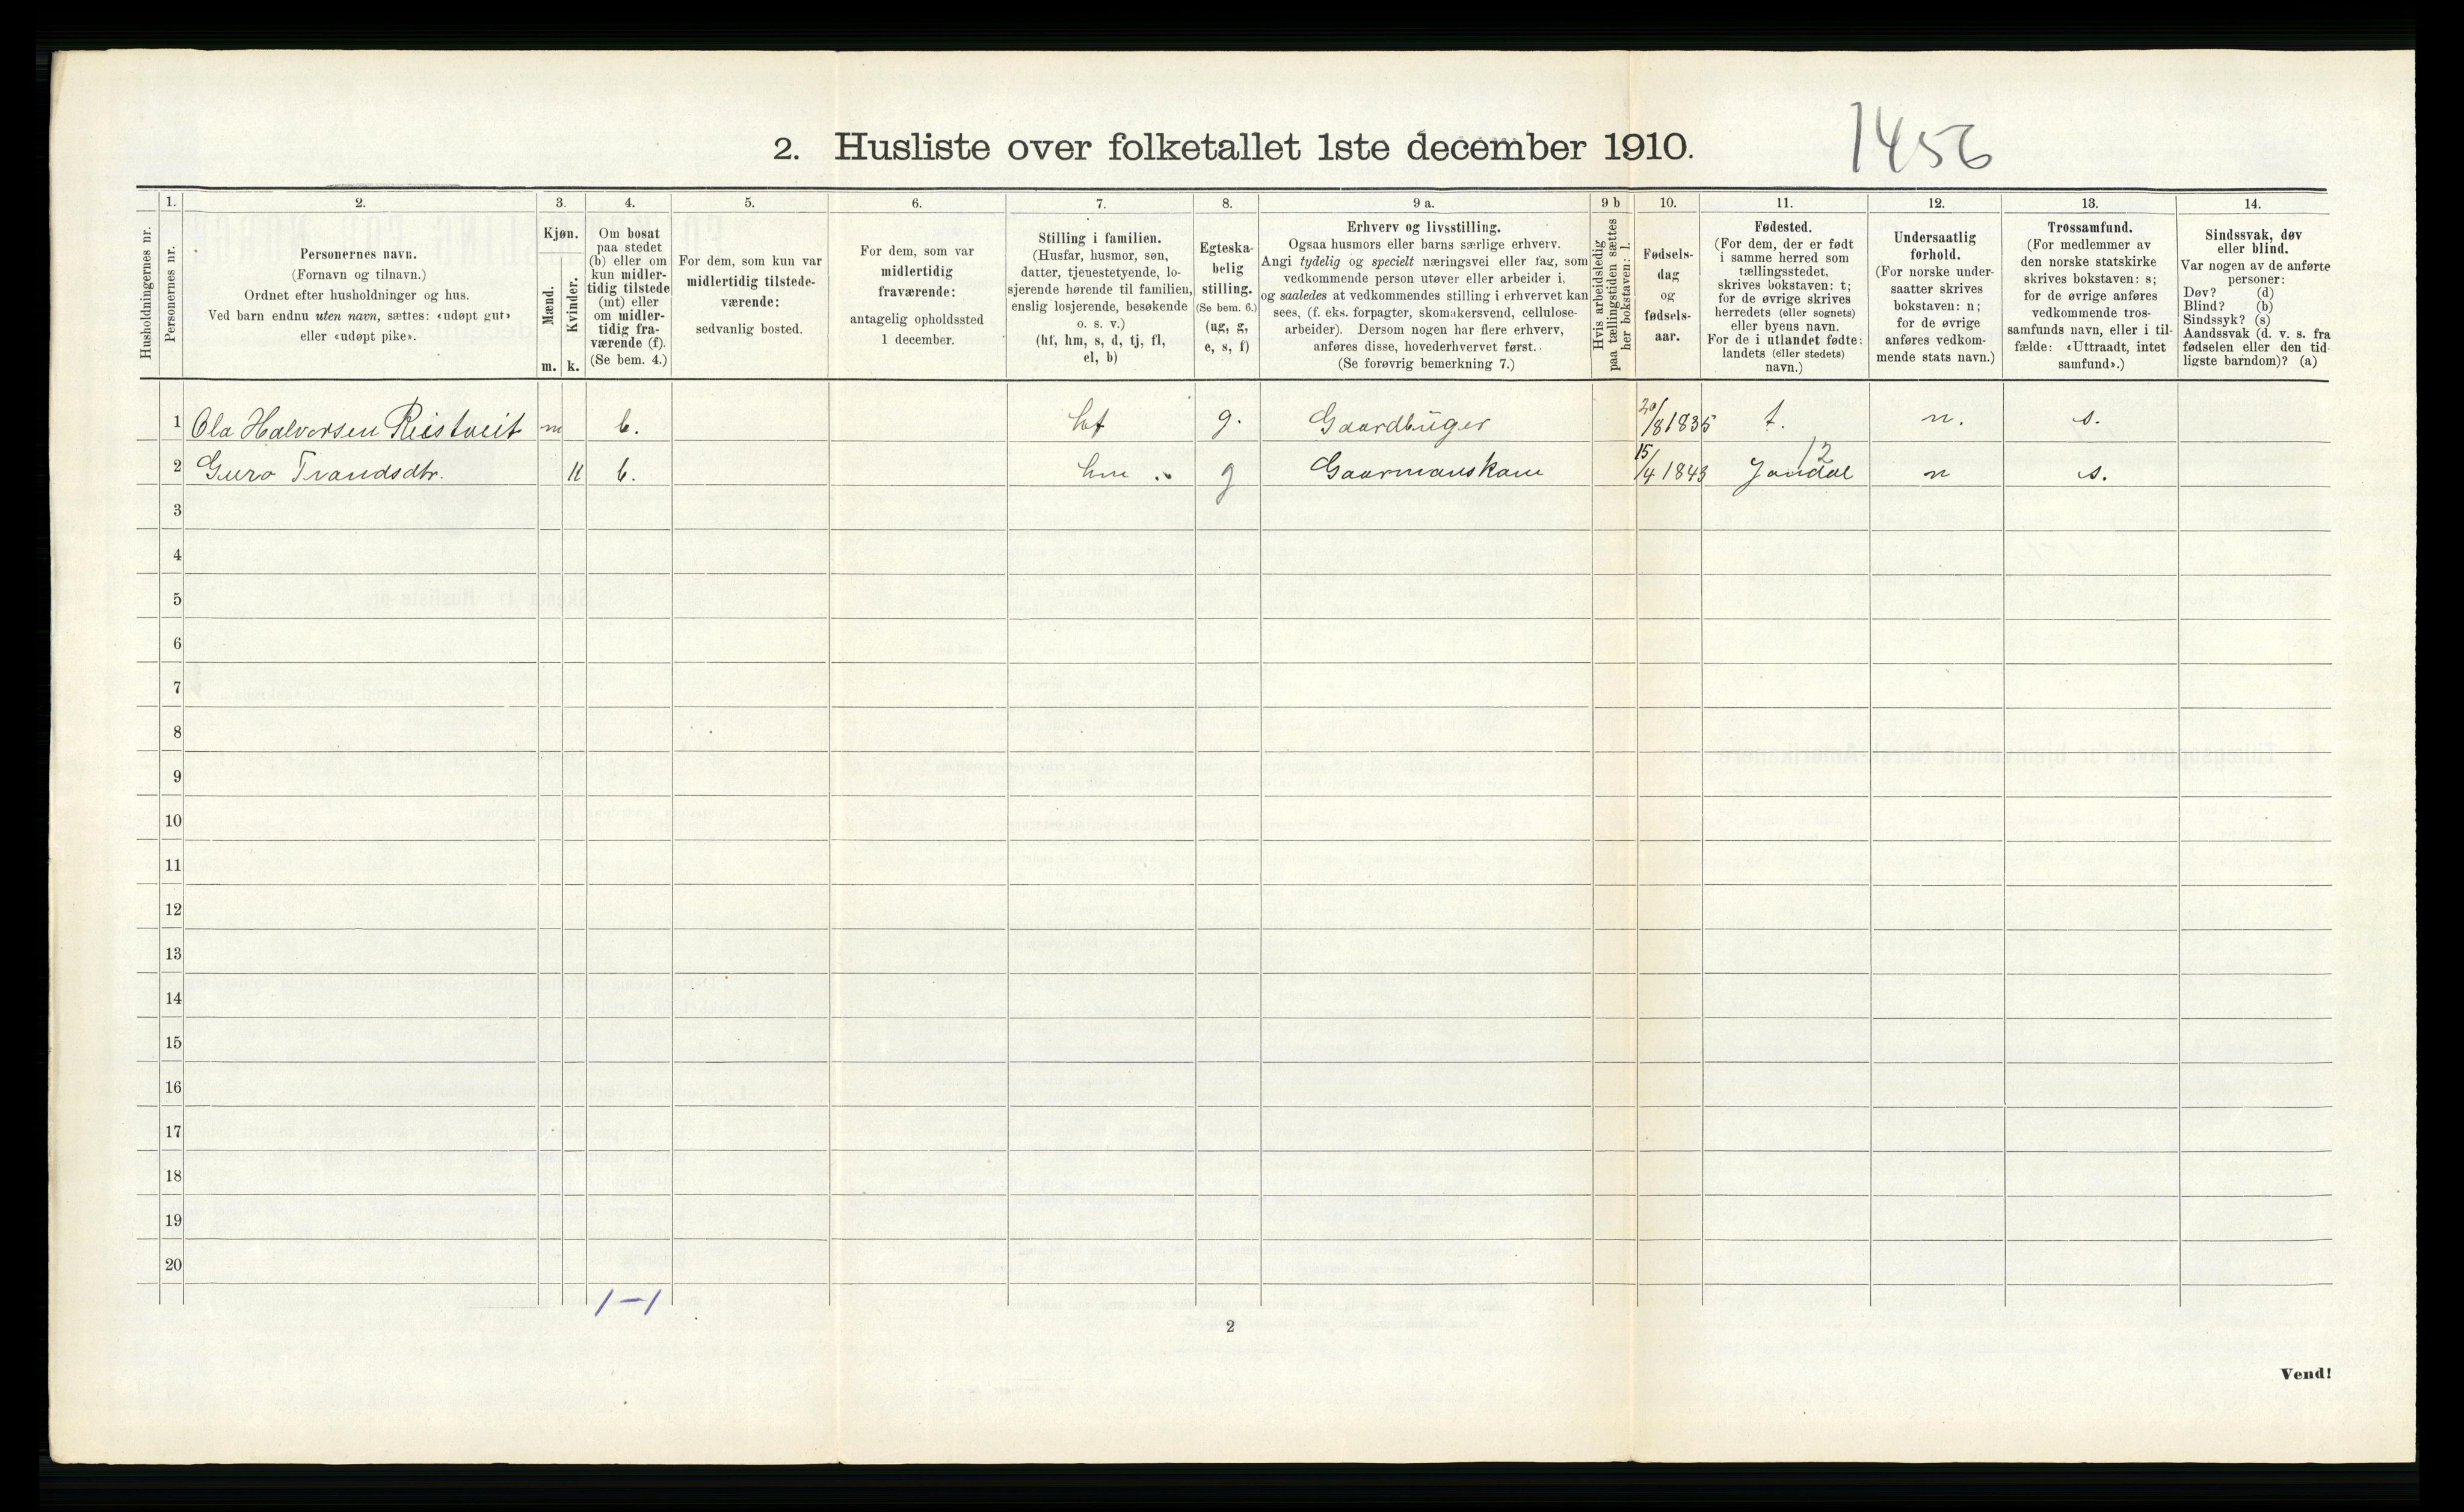 2. Husliste over folketallet 1ste december 1910.
1456
Husholdningernes nr.
1.
Personernes nr.
2.
Personernes navn.
(Fornavn og tilnavn.)
Ordnet efter husholdninger og hus.
Ved barn endnu uten navn, sættes: «udøpt gut»
eller «udøpt pike».
3.
Kjøn.
Mænd.
Kvinder.
m.
k.
4.
Om bosat
paa stedet
(b) eller om
kun midler-
tidig tilstede
(mt) eller
om midler-
tidig fra-
værende (f).
(Se bem. 4.)
5.
For dem, som kun var
midlertidig tilstede-
værende:
sedvanlig bosted.
6.
For dem, som var
midlertidig
fraværende:
antagelig opholdssted
1 december.
7.
Stilling i familien.
(Husfar, husmor, søn,
datter, tjenestetyende, lo-
sjerende hørende til familien,
enslig losjerende, besøkende
o. s. v.)
(hf, hm, s, d, tj, fl,
el, b)
8.
Egteska-
belig
stilling.
(Se bem. 6.)
(ug, g,
e, s, f)
9 a.
Erhverv og livsstilling.
Ogsaa husmors eller barns særlige erhverv.
Angi tydelig og specielt næringsvei eller fag, som
vedkommende person utøver eller arbeider i,
og saaledes at vedkommendes stilling i erhvervet kan
sees, (f. eks. forpagter, skomakersvend, cellulose-
arbeider). Dersom nogen har flere erhverv,
anføres disse, hovederhvervet først.
(Se forøvrig bemerkning 7.)
9 b
Hvis arbeidsledig
paa tællingstiden sættes
her bokstaven: l.
10.
Fødsels-
dag
og
fødsels-
aar.
11.
Fødested.
(For dem, der er født
i samme herred som
tællingsstedet,
skrives bokstaven: t;
for de øvrige skrives
herredets (eller sognets)
eller byens navn.
For de i utlandet fødte:
landets (eller stedets)
navn.)
12.
Undersaatlig
forhold.
(For norske under-
saatter skrives
bokstaven: n;
for de øvrige
anføres vedkom-
mende stats navn.)
13.
Trossamfund.
(For medlemmer av
den norske statskirke
skrives bokstaven: s;
for de øvrige anføres
vedkommende tros-
samfunds navn, eller i til-
fælde: «Uttraadt, intet
samfund».)
14.
Sindssvak, døv
eller blind.
Var nogen av de anførte
personer:
Døv? (d)
Blind? (b)
Sindssyk? (s)
Aandssvak (d. v. s. fra
fødselen eller den tid-
ligste barndom)? (a)
1 Ola Halvorsen Reistveit m b. hf g. Gaardbruger 20/8 1835 t. n. s.
2 Guro Trondsdtr. k b. hm g Gaarmanskone 15/4 1843 Jondal 12 n s.
3
4
5
6
7
8
9
10
11
12
13
14
15
16
17
18
19
20
1 – 1
2
Vend!